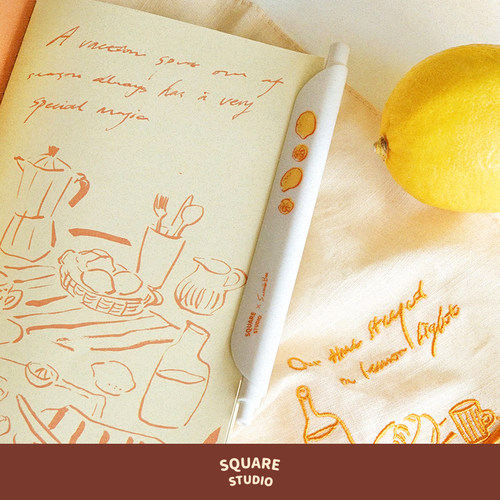 A vacation spent out of
season always has a very
special magic
SQUARE
STUDIO
x
Our time strayed
in lemon lights
SQUARE
STUDIO